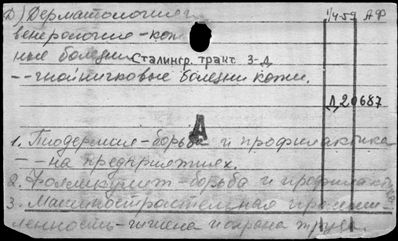 Д) Дерматология и 1/4-59 АФ
венерология - кож
ные болезни Сталингр. тракт. З-д
- - гнойничковые болезни кожи.
Д,20687
Д
1. Пиодермия - борьба и профилактика
- - на предприятиях.
2. Фолликулит - борьба и профилактика
3. Машиностроительная промыш
ленность - гигиена и охрана труда.